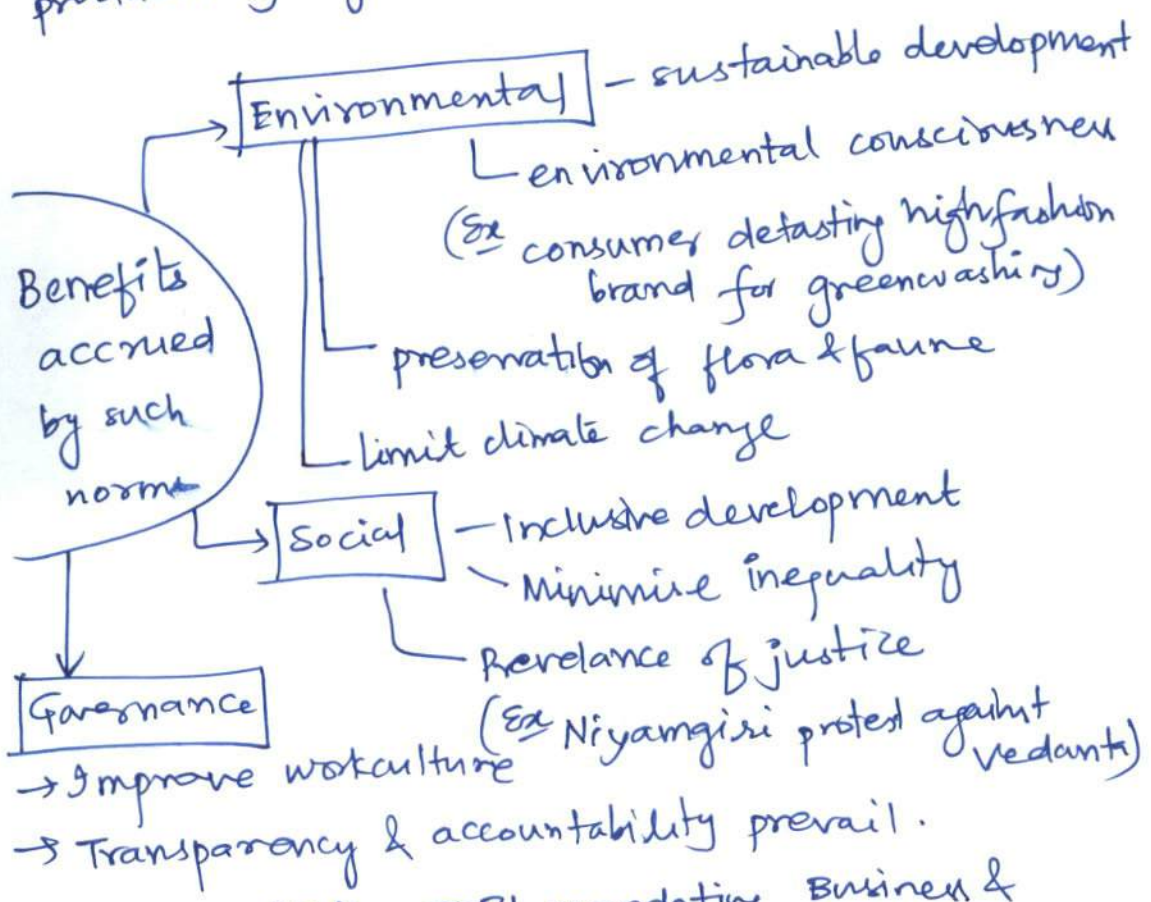 Environmental – sustainable development
environmental consciousness
(Ex consumer detasting high fashion
brand for greenwashing)
preservation of flora & faune
limit climate change
Benefits
accrued
by such
norms
Social – Inclusive development
Minimise inequality
Prevelance of justice
(Ex Niyamgiri protest against
vedanta)
Governance
→ Improve workculture
→ Transparency & accountability prevail.
Business &